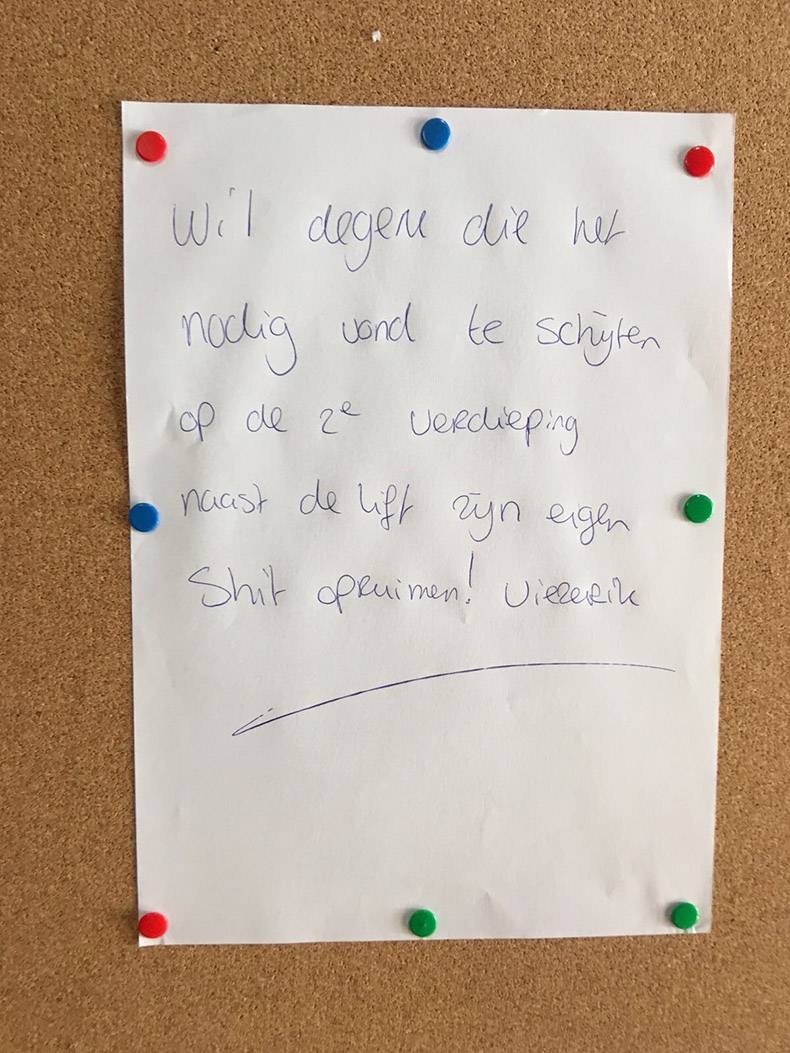 Wil degene die het
nodig vond te schijten
op de 2e verdieping
naast de lift zijn eigen
Shit opruimen! Viezerik